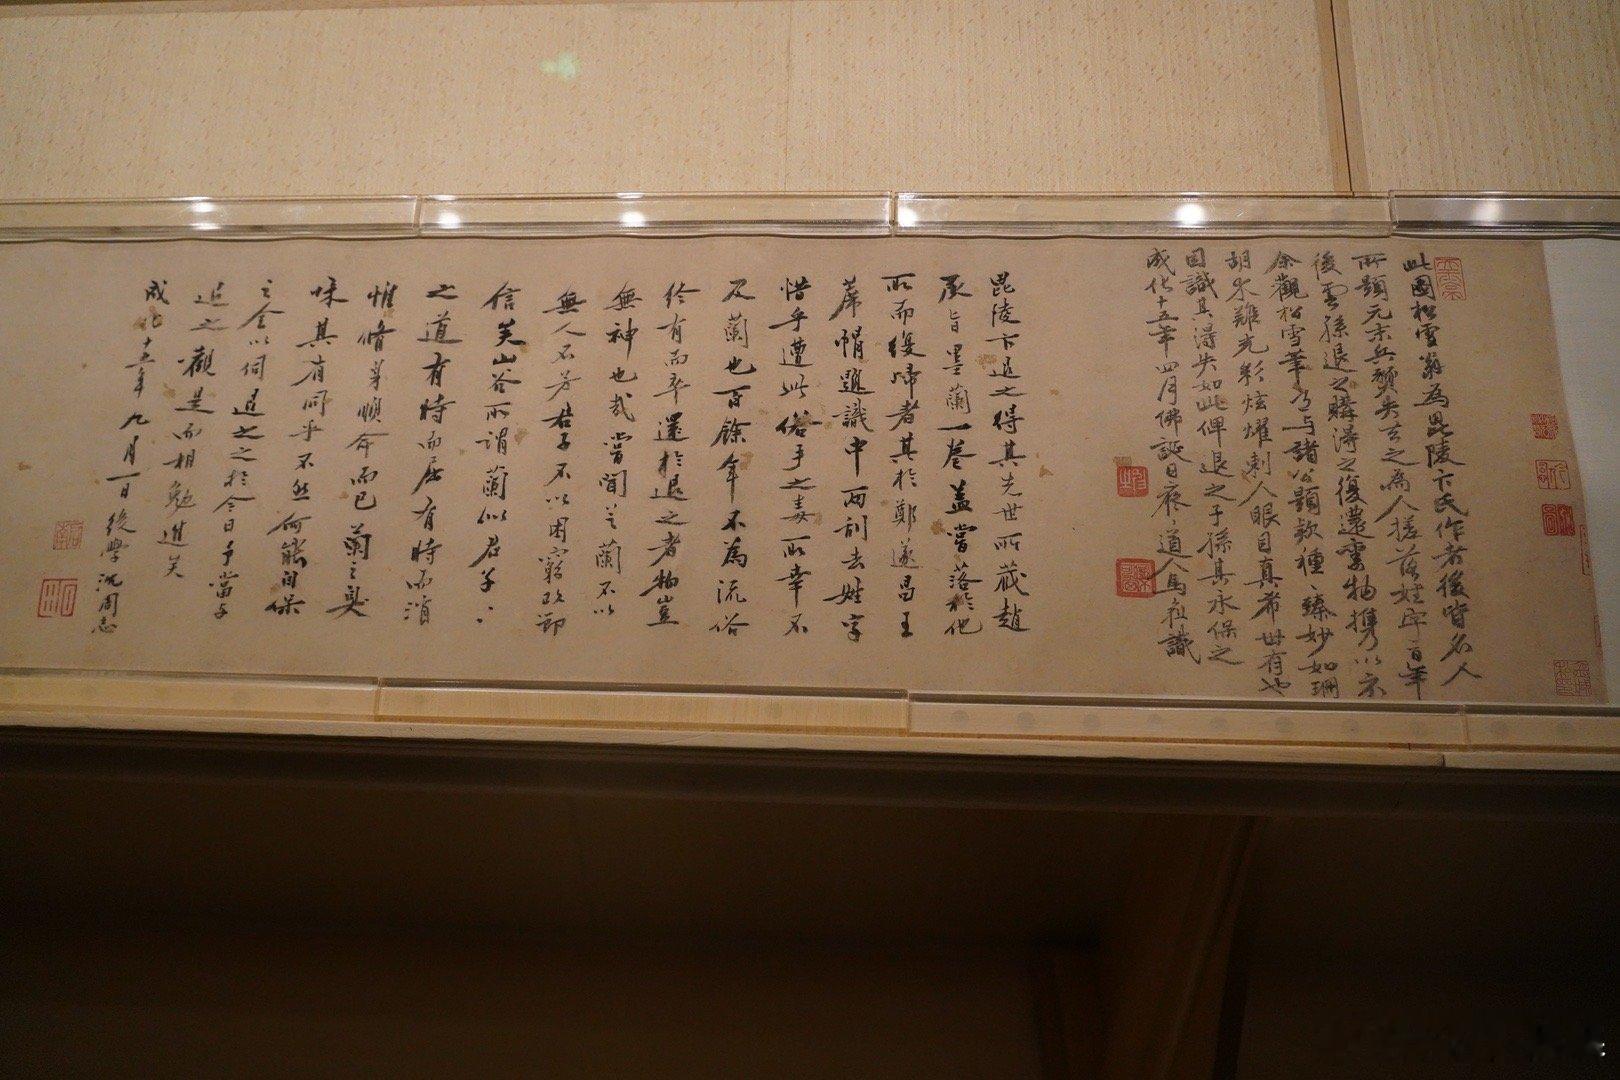 此圖松雪翁為毘陵卞氏作者後皆名人
所題元末兵變失去之為人搓落姓字百年
後雲孫退之購得之復還舊物携以示
余觀松雪筆意与諸公題款種〻臻妙如珊
瑚木難光彩炫燿刺人眼目真希世有也
因識其得失如此俾退之子孫其永保之
成化十五年四月佛誕日痴〻道人馬祖識
毘陵卞退之得其先世所蔵趙
承旨墨蘭一卷蓋嘗落於他
所而復歸者其於鄭遂昌王
蓆帽題識中兩刮去姓字
惜乎遭此俗手之毒所幸不
及蘭也百餘年不為流俗
終有而卒還於退之者物豈
無神也哉嘗聞之蘭不以
無人不芳君子不以困窮改節
信矣山谷所謂蘭似君子〻
之道有時而屈有時而消
惟脩身順命而已蘭之臭
味其有同乎不然何能自保
之全以伺退之之於今日予當与
退之觀是而相勉進矣
成化十五年九月一日後學沈周志